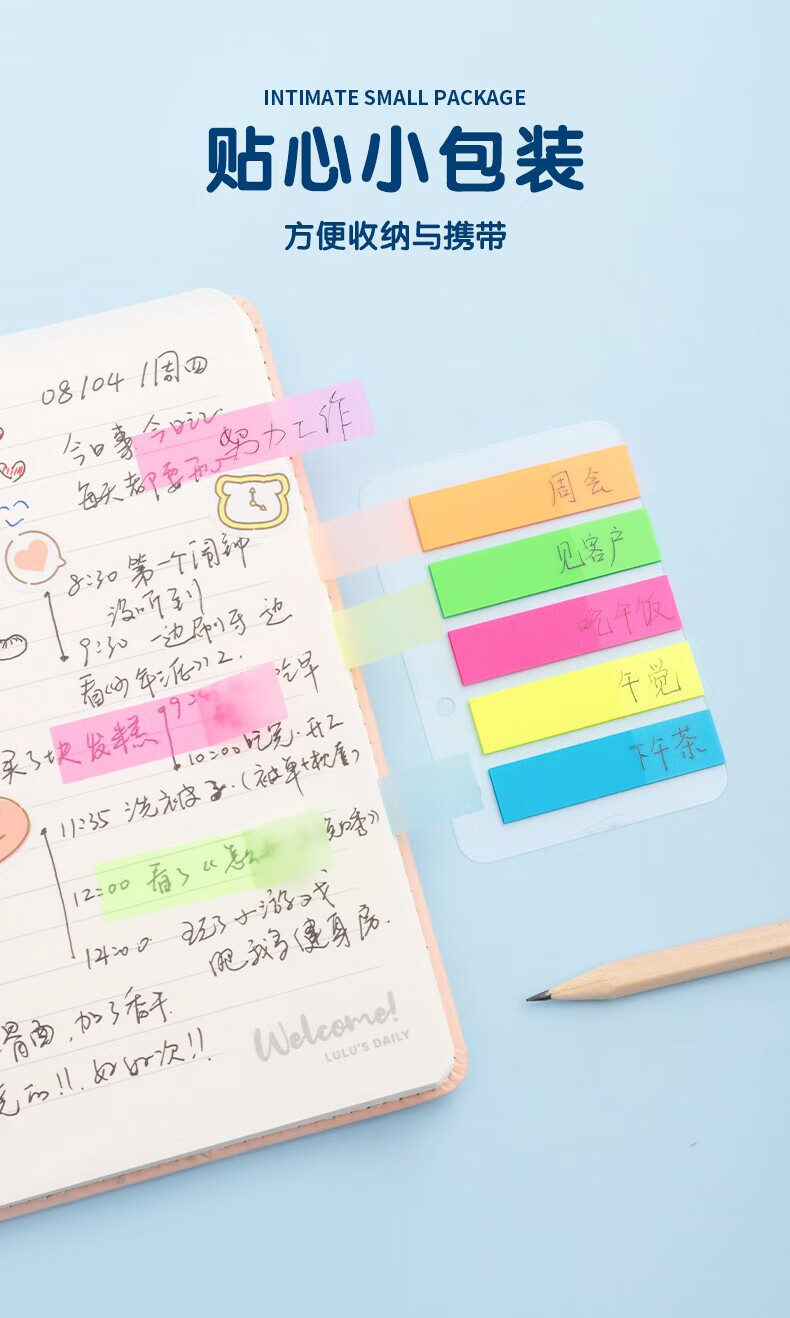 INTIMATE SMALL PACKAGE
贴心小包装
方便收纳与携带
08/04/周四
今日事 今日记
努力工作
每天都要
8:30 第一个闹钟
没听到
9:30 一边刷牙 边
看
吃早
买了块发糕
10:00 吃完.开工
11:35 洗被子.(被单+枕套)
12:00 看了《怎么
14:00 玩了小游戏
肥我去健身房.
胃面,加了香干
完的!!. 好好次!!
Welcome!
LULU'S DAILY
周会
见客户
吃午饭
午觉
下午茶